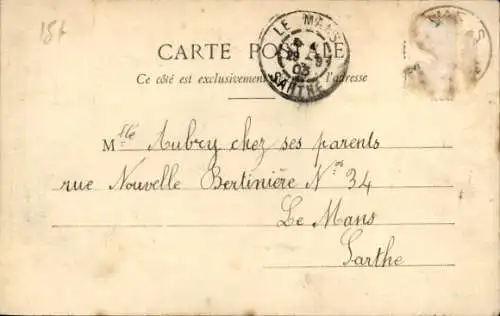 15f
LE MANS
29
03
SARTHE
CARTE POSTALE
Ce côté est exclusivement l'adresse
Mlle Aubry chez ses parents
rue Nouvelle Bertinière Nos 34
Le Mans
Sarthe